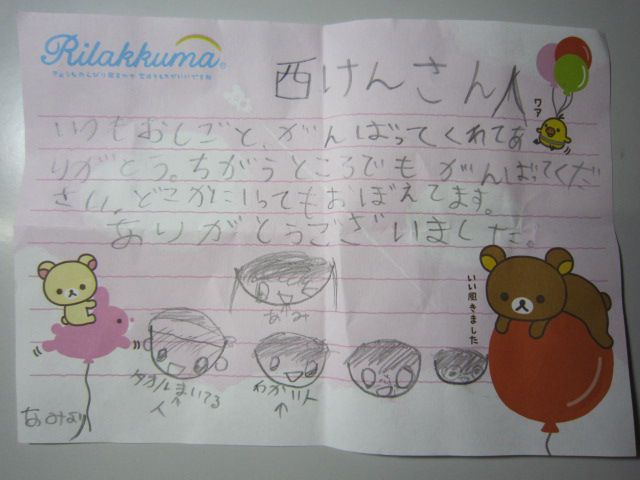 Rilakkuma
西けんさん人
ワァ
いつもおしごと、がんばってくれてあ
りがとう。ちがうところでも がんばってくだ
さい。どこかにいってもおぼえてます。
ありがとうございました。
いい風きました
あみ
タオルまいてる
人
わかい人
あみより